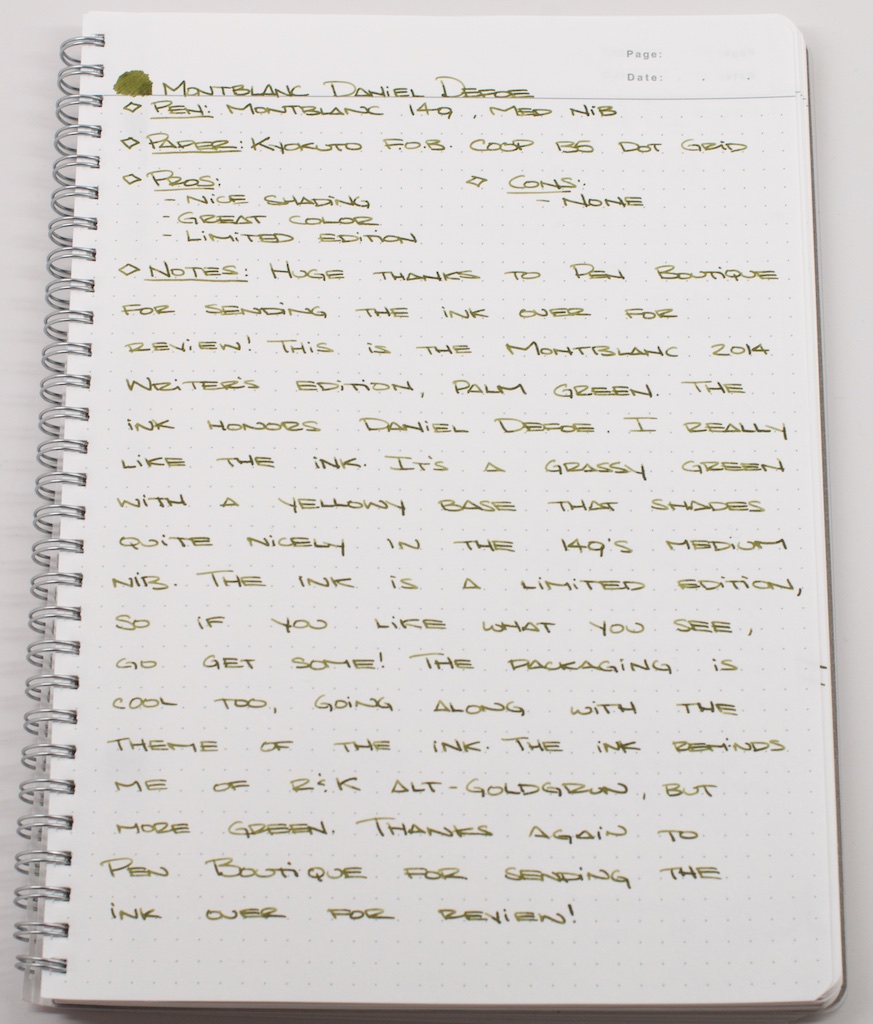 Page:
Date:
MONTBLANC DANIEL DEFOE
◇ PEN: MONTBLANC 149, MED NIB
◇ PAPER: KYOKUTO F.O.B. COOP B5 DOT GRID
◇ PROS: ◇ CONS:
- NICE SHADING - NONE
- GREAT COLOR
- LIMITED EDITION
◇ NOTES: HUGE THANKS TO PEN BOUTIQUE
FOR SENDING THE INK OVER FOR
REVIEW! THIS IS THE MONTBLANC 2014
WRITER'S EDITION, PALM GREEN. THE
INK HONORS DANIEL DEFOE. I REALLY
LIKE THE INK. IT'S A GRASSY GREEN
WITH A YELLOWY BASE THAT SHADES
QUITE NICELY IN THE 149'S MEDIUM
NIB. THE INK IS A LIMITED EDITION,
SO IF YOU LIKE WHAT YOU SEE,
GO GET SOME! THE PACKAGING IS
COOL TOO, GOING ALONG WITH THE
THEME OF THE INK. THE INK REMINDS
ME OF R&K ALT-GOLDGRUN, BUT
MORE GREEN. THANKS AGAIN TO
PEN BOUTIQUE FOR SENDING THE
INK OVER FOR REVIEW!